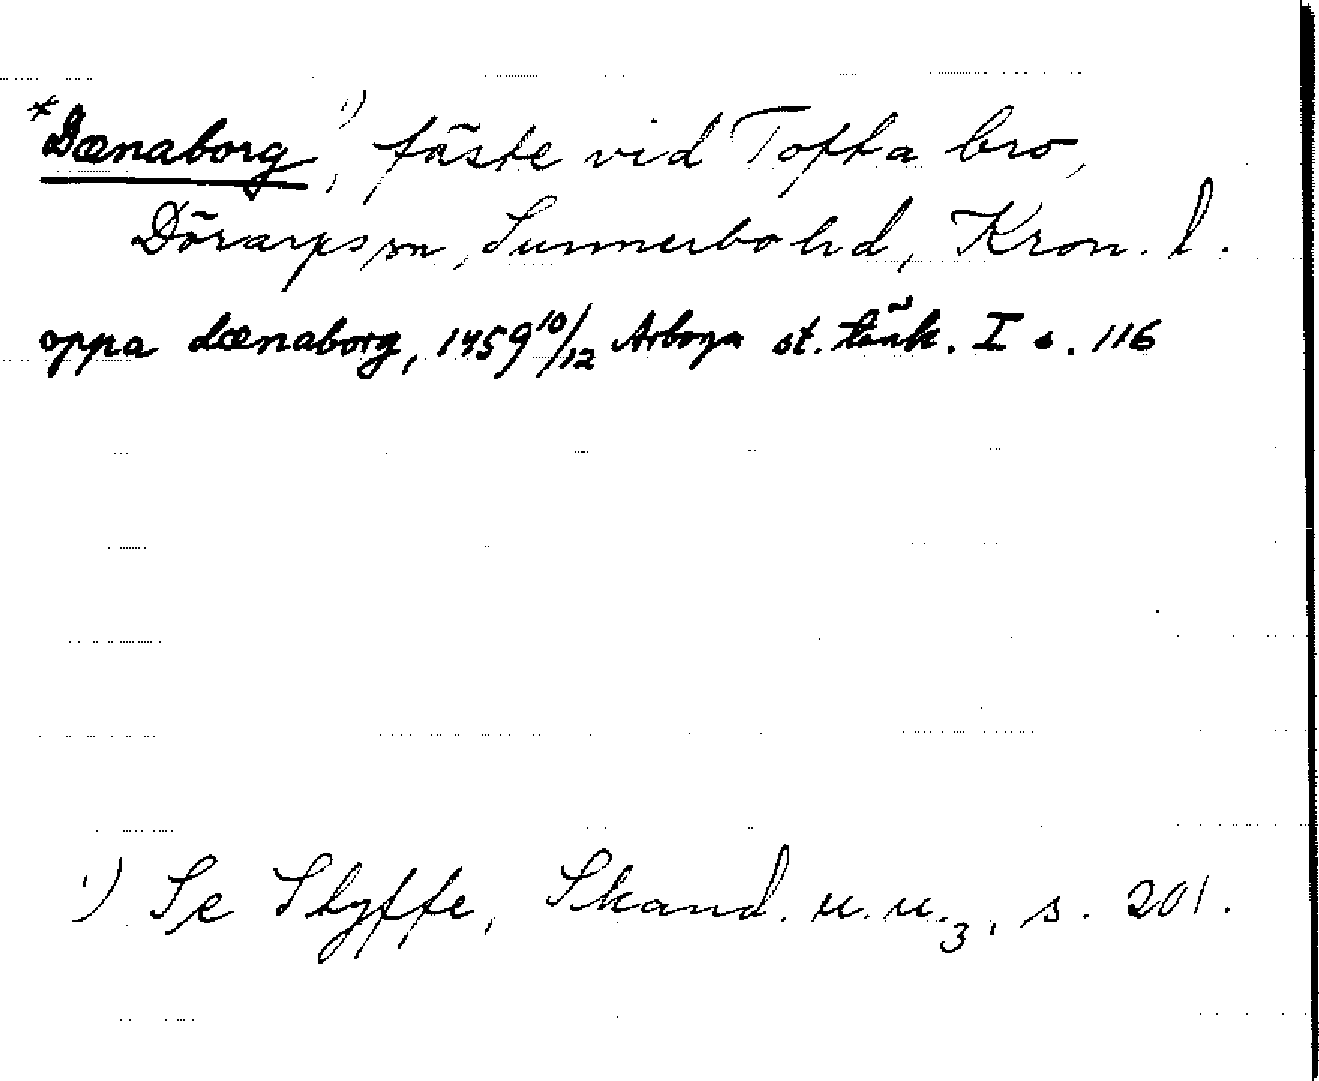 *Dænaborg¹), fäste vid Tofta bro,
Dörarps sn, Sunnerbo hd, Kron. l.
oppa dænaborg, 1459 10/12 Arboga st. tänk. I s. 116
¹) Se Styffe, Skand. u. u.₃, s. 201.